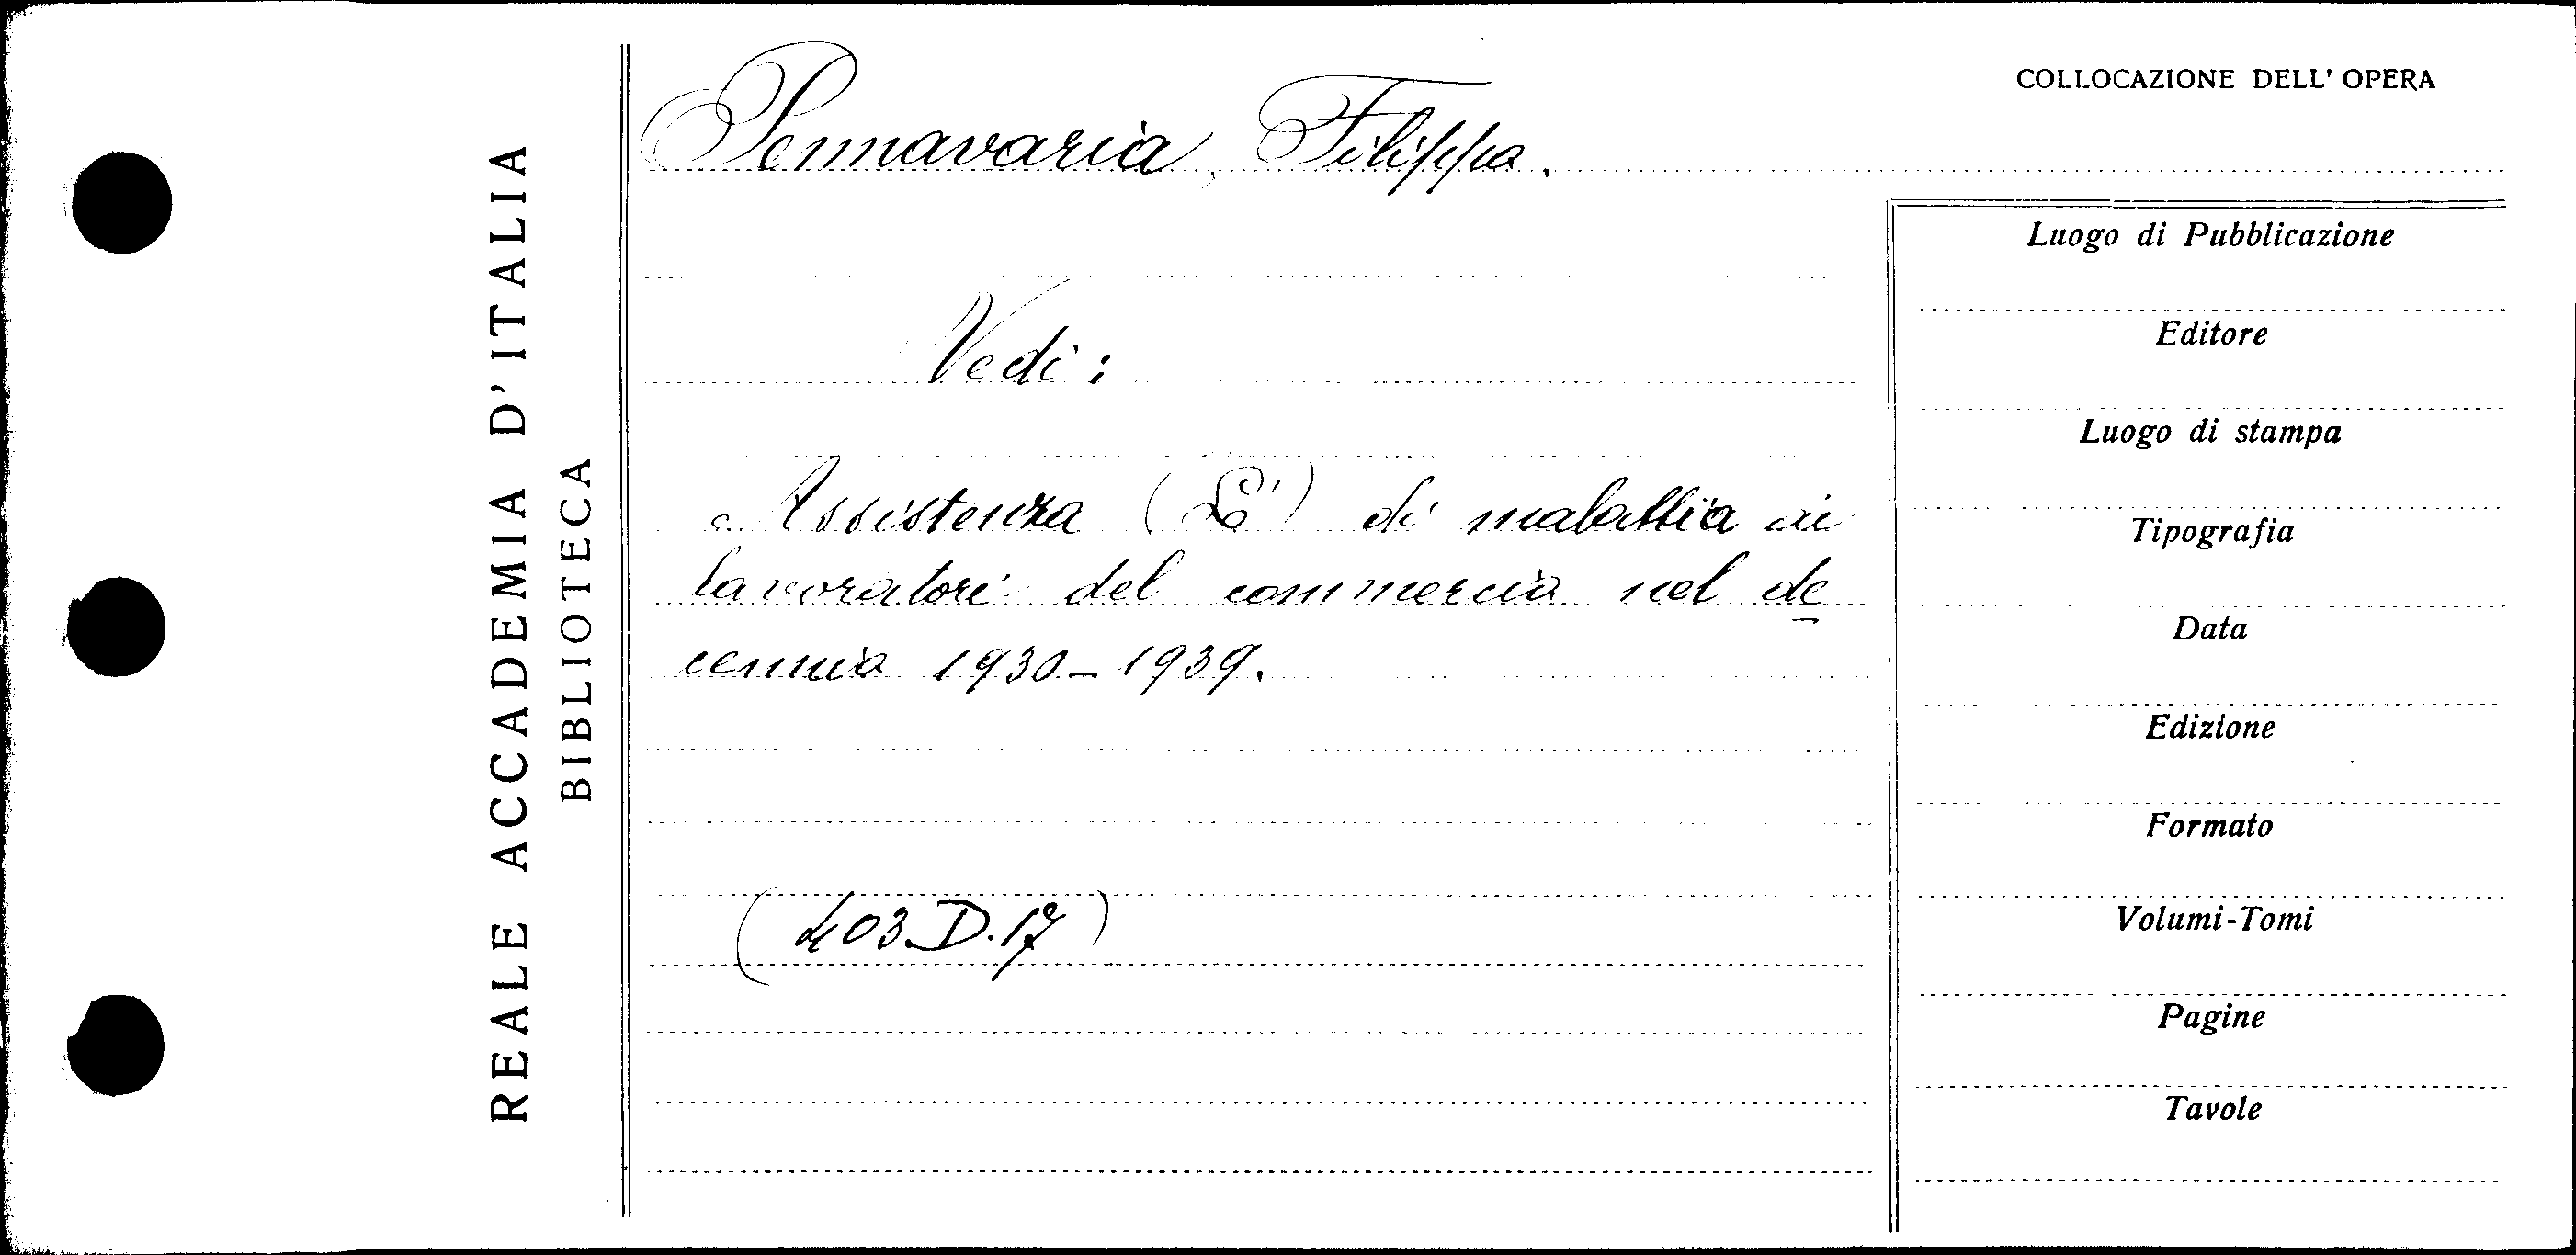 REALE ACCADEMIA D'ITALIA
BIBLIOTECA
Pennavaria, Filippo.
Vedi:
Assistenza (L') di malattia ai
lavoratori del commercio nel de
cennio 1930-1939.
(403.D.17)
COLLOCAZIONE DELL' OPERA
Luogo di Pubblicazione
Editore
Luogo di stampa
Tipografia
Data
Edizione
Formato
Volumi-Tomi
Pagine
Tavole